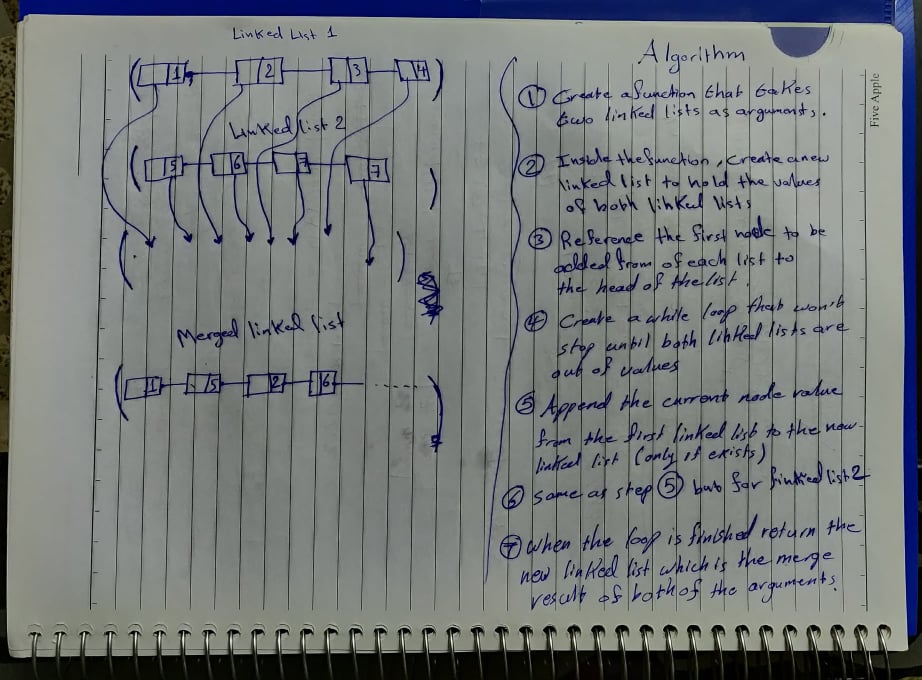 Linked List 1
1 2 3 4
Linked list 2
5 6 7
Merged linked list
1 5 2 6
Algorithm
① Create a function that takes
two linked lists as arguments.
② Inside the function, create a new
linked list to hold the values
of both linked lists
③ Reference the first node to be
added from of each list to
the head of the list.
④ Create a while loop that won't
stop until both linked lists are
out of values
⑤ Append the current node value
from the first linked list to the new
linked list (only if exists)
⑥ Same as step ⑤ but for linked list 2
⑦ when the loop is finished return the
new linked list which is the merge
result of both of the arguments.
Five Apple